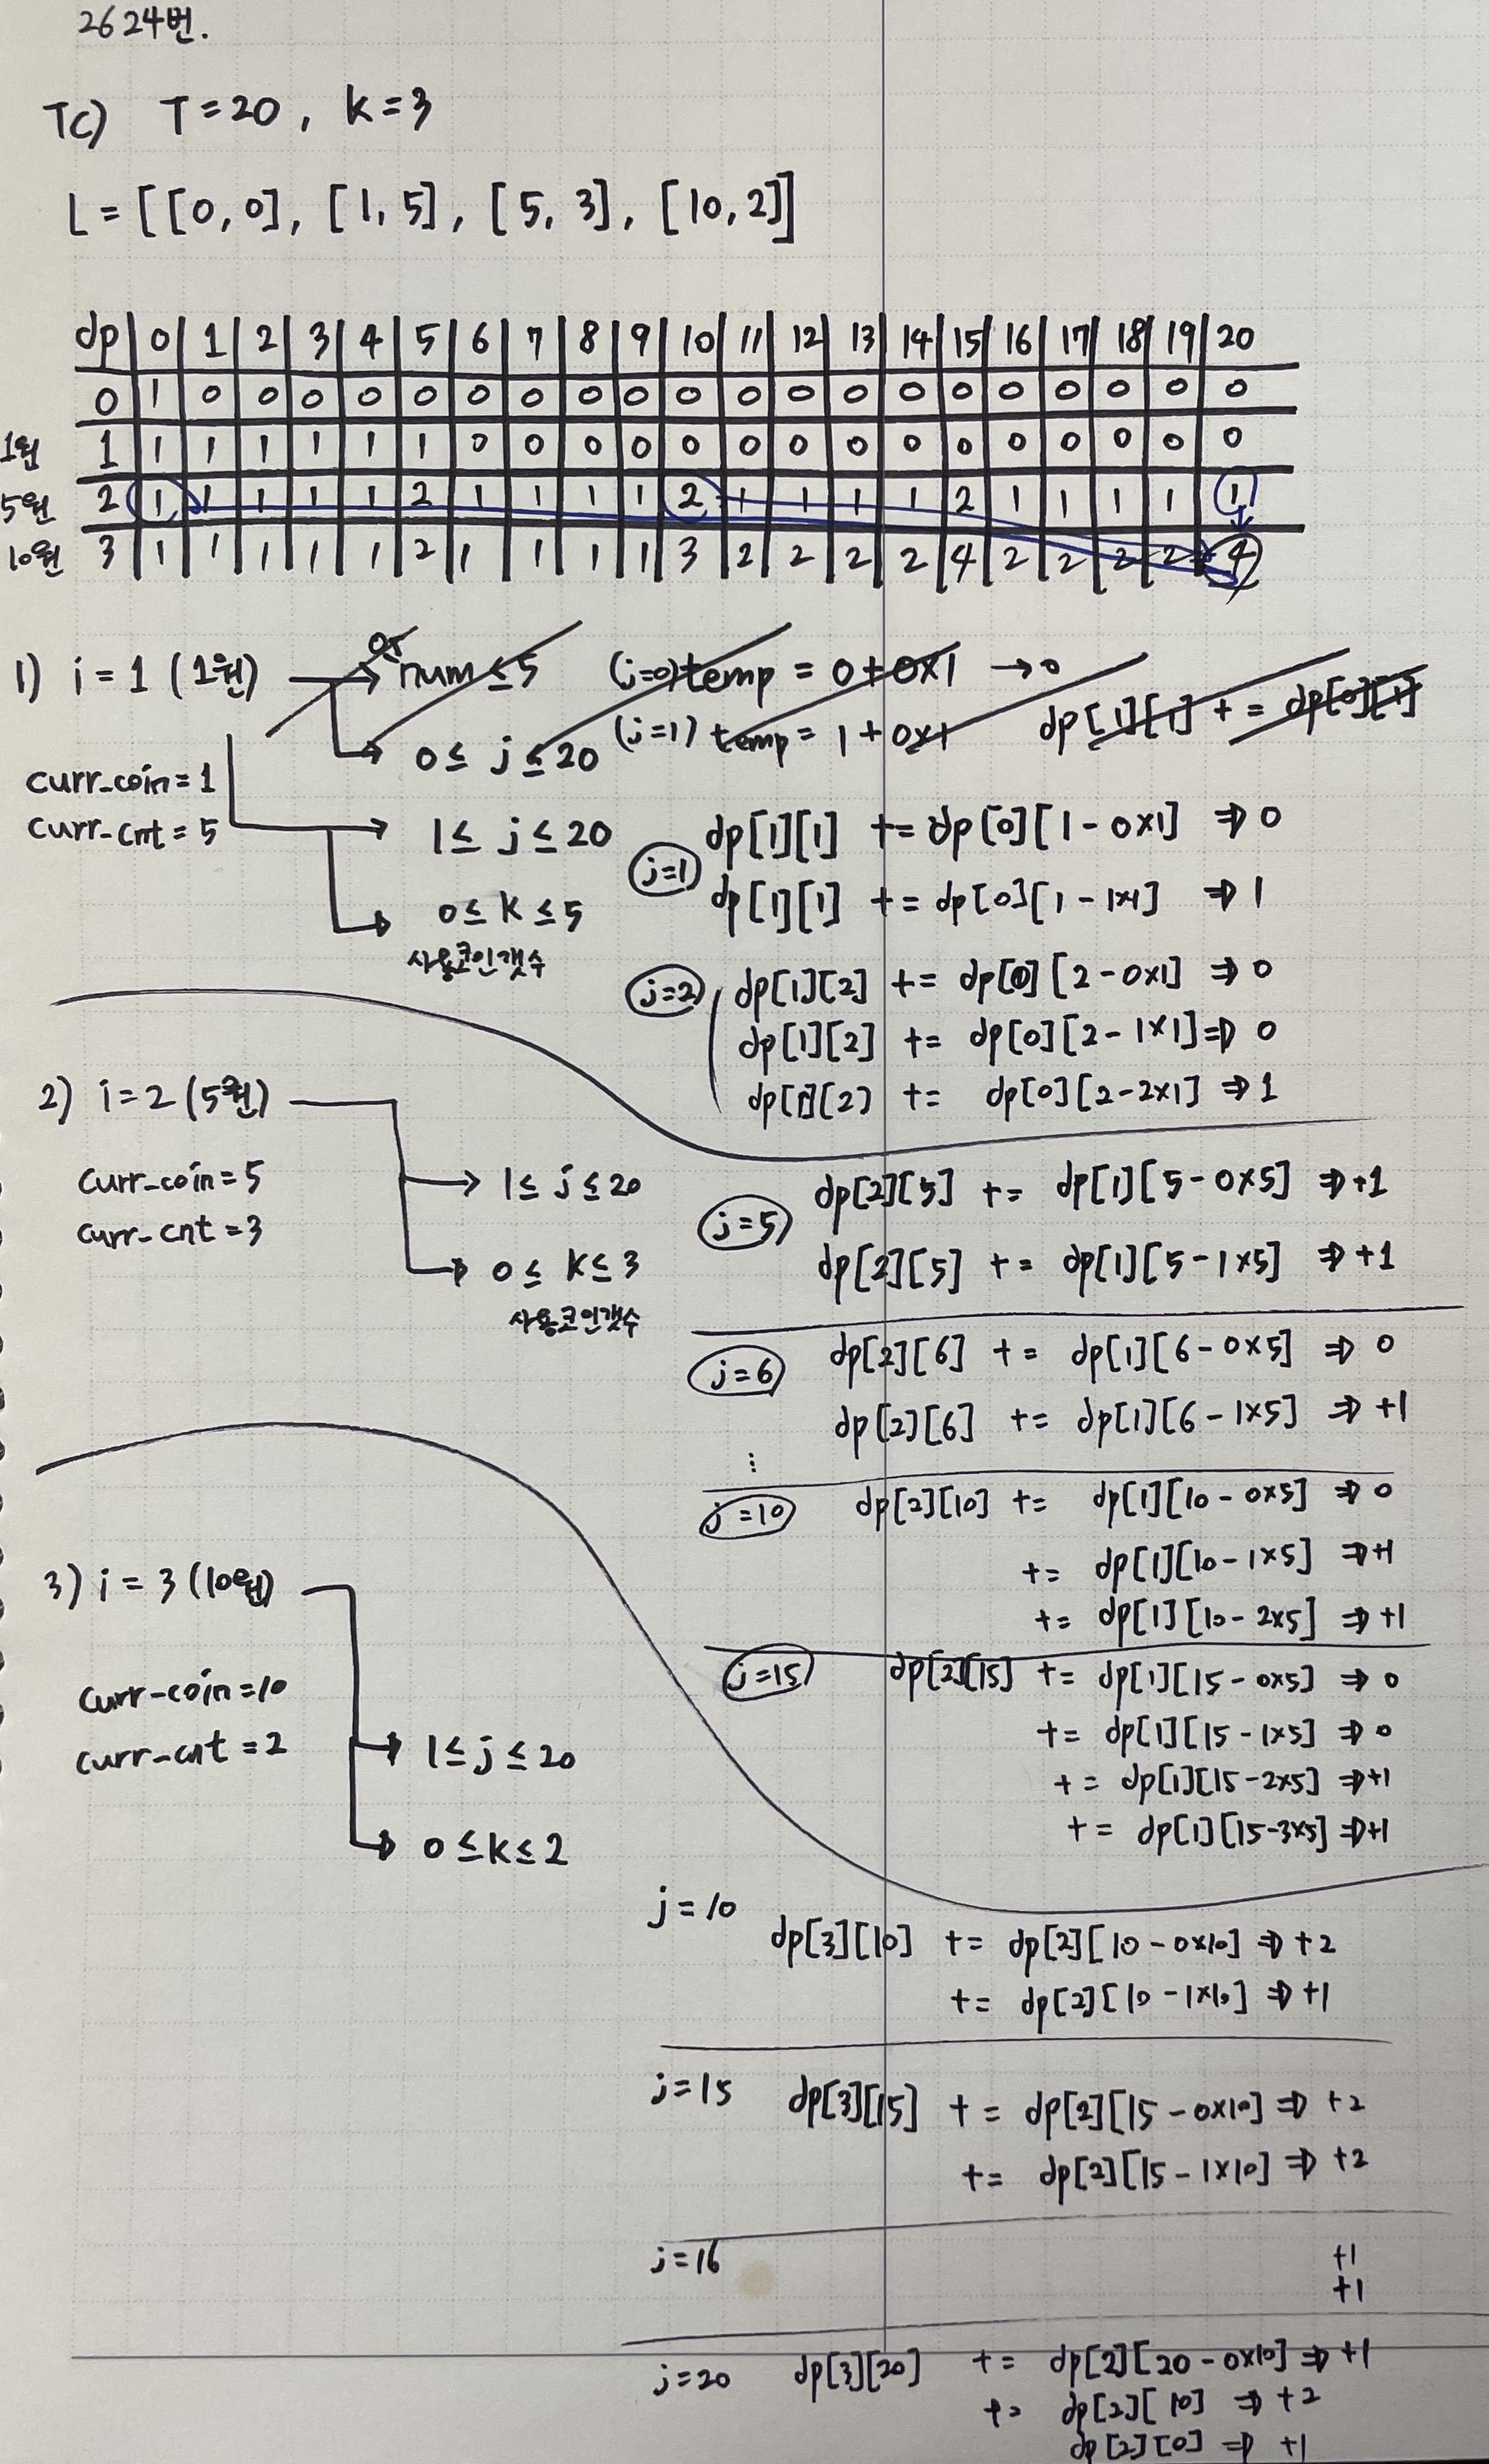 2624번.
TC) T=20, k=3
L = [[0,0], [1,5], [5,3], [10,2]]
dp 0 1 2 3 4 5 6 7 8 9 10 11 12 13 14 15 16 17 18 19 20
0 1 0 0 0 0 0 0 0 0 0 0 0 0 0 0 0 0 0 0 0 0
1원 1 1 1 1 1 1 1 0 0 0 0 0 0 0 0 0 0 0 0 0 0 0
5원 2 1 1 1 1 1 2 1 1 1 1 2 1 1 1 1 2 1 1 1 1 1
10원 3 1 1 1 1 1 2 1 1 1 1 3 2 2 2 2 4 2 2 2 2 4
1) i = 1 (1원) → 0≤ num ≤ 5 (j=0) temp = 0+0×1 → 0
0 ≤ j ≤ 20 (j=1) temp = 1+0×1 dp[1][1] += dp[0][1]
curr_coin = 1
curr_cnt = 5
1 ≤ j ≤ 20
0 ≤ k ≤ 5
사용코인갯수
j=1 dp[1][1] += dp[0][1-0×1] ⇒ 0
dp[1][1] += dp[0][1-1×1] ⇒ 1
j=2 dp[1][2] += dp[0][2-0×1] ⇒ 0
dp[1][2] += dp[0][2-1×1] ⇒ 0
dp[1][2] += dp[0][2-2×1] ⇒ 1
2) i = 2 (5원)
curr_coin = 5
curr_cnt = 3
1 ≤ j ≤ 20
0 ≤ k ≤ 3
사용코인갯수
j=5 dp[2][5] += dp[1][5-0×5] ⇒ +1
dp[2][5] += dp[1][5-1×5] ⇒ +1
j=6 dp[2][6] += dp[1][6-0×5] ⇒ 0
dp[2][6] += dp[1][6-1×5] ⇒ +1
⋮
j=10 dp[2][10] += dp[1][10-0×5] ⇒ 0
+= dp[1][10-1×5] ⇒ +1
+= dp[1][10-2×5] ⇒ +1
j=15 dp[2][15] += dp[1][15-0×5] ⇒ 0
+= dp[1][15-1×5] ⇒ 0
+= dp[1][15-2×5] ⇒ +1
+= dp[1][15-3×5] ⇒ +1
3) i = 3 (10원)
curr-coin = 10
curr-cnt = 2
1 ≤ j ≤ 20
0 ≤ k ≤ 2
j=10 dp[3][10] += dp[2][10-0×10] ⇒ +2
+= dp[2][10-1×10] ⇒ +1
j=15 dp[3][15] += dp[2][15-0×10] ⇒ +2
+= dp[2][15-1×10] ⇒ +2
j=16 +1
+1
j=20 dp[3][20] += dp[2][20-0×10] ⇒ +1
+= dp[2][10] ⇒ +2
dp[2][0] ⇒ +1